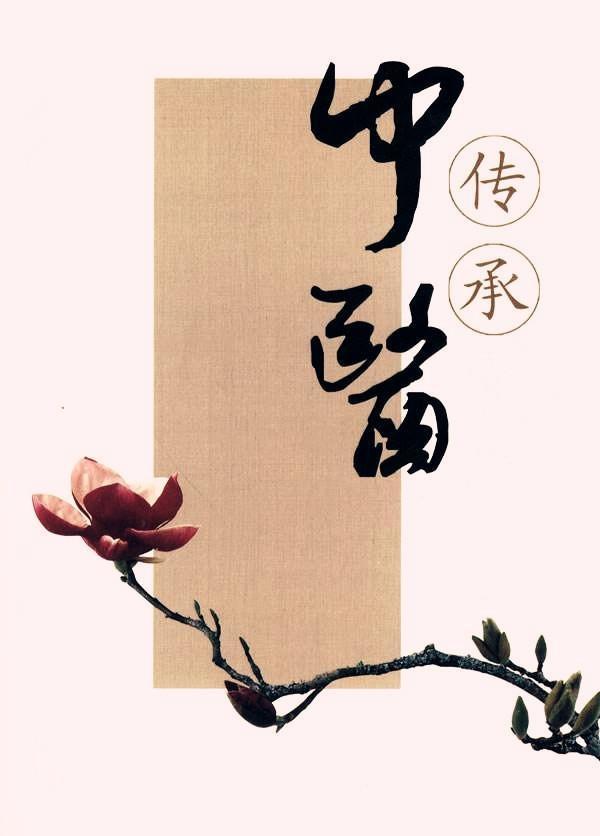 中醫
传承